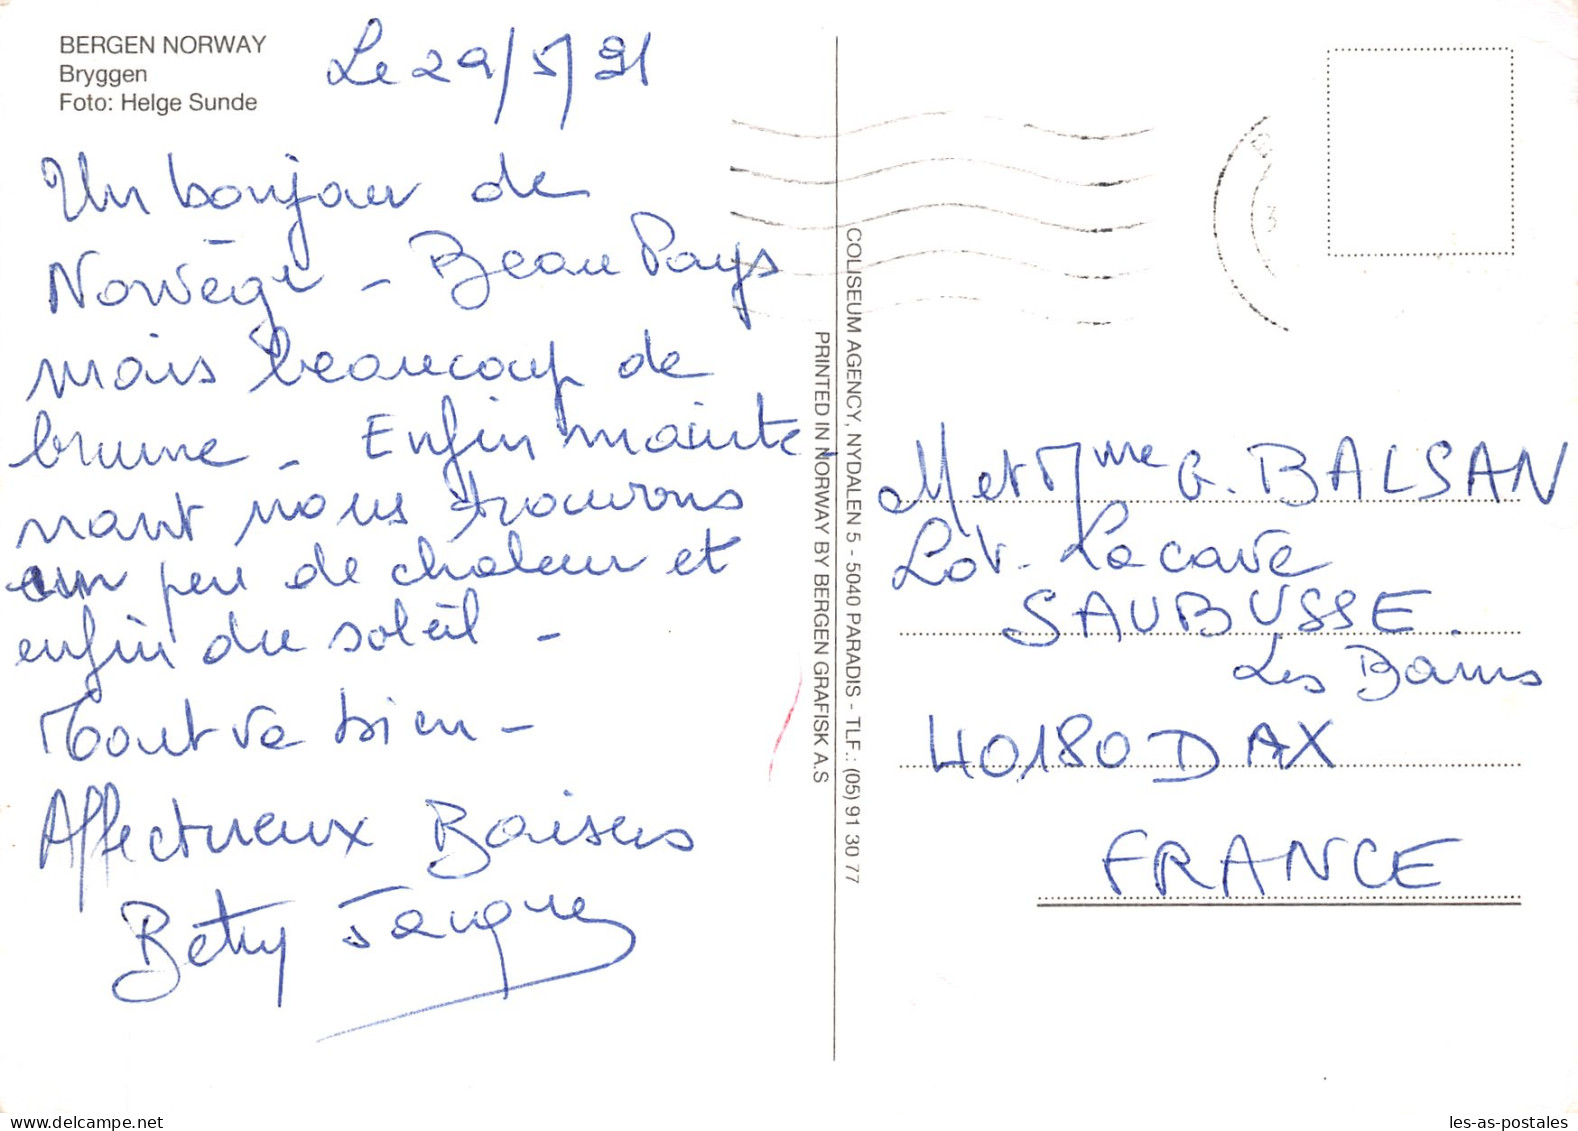 BERGEN NORWAY
Bryggen
Foto: Helge Sunde
Le 29/5/91
Un bonjour de
Norvège - Beau Pays
mais beaucoup de
brume - Enfin mainte
nant nous trouvons
un peu de chaleur et
enfin du soleil -
Tout va bien -
Affectueux Baisers
Betty Jacques
COLISEUM AGENCY, NYDALEN 5 - 5040 PARADIS - TLF.: (05) 91 30 77
PRINTED IN NORWAY BY BERGEN GRAFISK A.S
M et Mme G. BALSAN
Lot. Lacave
SAUBUSSE.
Les Bains
40180 DAX
FRANCE
delcampe.net
les-as-postales